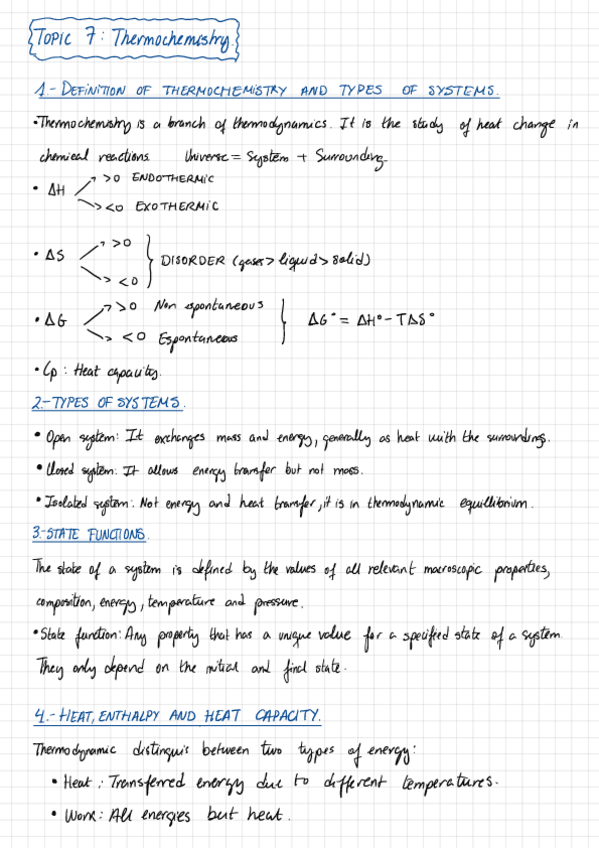 TOPIC 7: Thermochemistry.
1.- DEFINITION OF THERMOCHEMISTRY AND TYPES OF SYSTEMS.
•Thermochemistry is a branch of thermodynamics. It is the study of heat change in
chemical reactions. Universe = System + Surrounding.
• ΔH >0 ENDOTHERMIC
<0 EXOTHERMIC
• ΔS >0
<0
DISORDER (gases > liquid > solid)
• ΔG >0 Non spontaneous
<0 Espontaneous
ΔG° = ΔH° - TΔS°
• Cp : Heat capacity.
2.- TYPES OF SYSTEMS.
• Open system: It exchanges mass and energy, generally as heat with the surroundings.
• Closed system: It allows energy transfer but not mass.
• Isolated system: Not energy and heat transfer, it is in thermodynamic equillibrium.
3.- STATE FUNCTIONS.
The state of a system is defined by the values of all relevant macroscopic properties,
composition, energy, temperature and pressure.
• State function: Any property that has a unique value for a specified state of a system.
They only depend on the initial and final state.
4.- HEAT, ENTHALPY AND HEAT CAPACITY.
Thermodynamic distinguis between two types of energy:
• Heat : Transferred energy due to different temperatures.
• Work: All energies but heat.